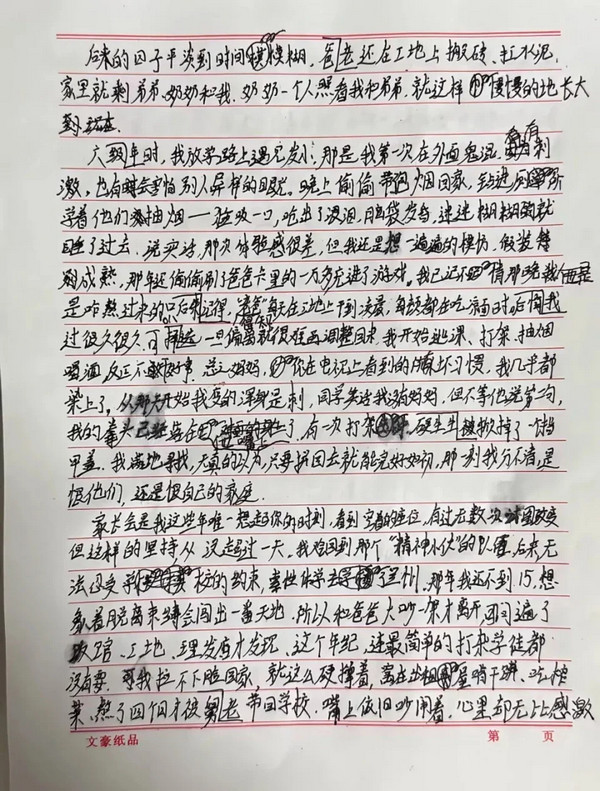 后来的日子平淡到时间模糊,爸老还在工地上搬砖、扛水泥,
家里就剩弟弟、奶奶和我、奶奶一个人照看我和弟弟.就这样慢慢的地长大
到
六年级时,我放学路上遇见发小,那是我第一次在外面鬼混.有刺
激,也有时会害怕别人异样的眼光。晚上偷偷带烟回家,
学着他们抽烟——猛吸一口,呛出了眼泪,脑袋发昏,迷迷糊糊就
睡了过去.说实话,那次体验感很差,但我还是一遍遍的模仿,假装
成熟,那年还偷偷刷了爸爸卡里的一万多充进了游戏.我已记不
是咋熬过来的只后来记得,爸爸每天在工地上干到凌晨,每顿都在吃泡面时后悔
过很久很久.可一旦偏离就很难再调整回来,我开始逃课、打架、抽烟
喝酒反正不做好事.总之妈妈,你在电视上看到的坏习惯,我几乎都
染上了.从那天开始我变的浑身是刺,同学笑话我没有妈妈.但不等他说第二句,
我的拳头已经落在了.有一次打架硬生生被掀掉了一个指
甲盖.我满地寻找,天真的以为,只要拼回去就能完好如初,那一刻我分不清是
恨他们,还是恨自己的家庭.
家长会是我这些年唯一想起你的时刻,看到空着的座位,有过无数次试图改变
但这样的坚持从没超过一天.我总回到那个“精神小伙”的队伍,后来无
法忍受学校的约束,索性休学去了州.那年我还不到15,想
象着脱离束缚会闯出一番天地.所以和爸爸大吵一架才离开,跑遍了
宾馆、工地、理发店才发现,这个年纪,连最简单的打杂学徒都
没有要.可我拉不下脸回家,就这么硬撑着,窝在出租屋啃干饼、吃榨
菜,熬了四个月被舅老带回学校.嘴上依旧吵闹着,心里却无比感激
文豪纸品 第 页